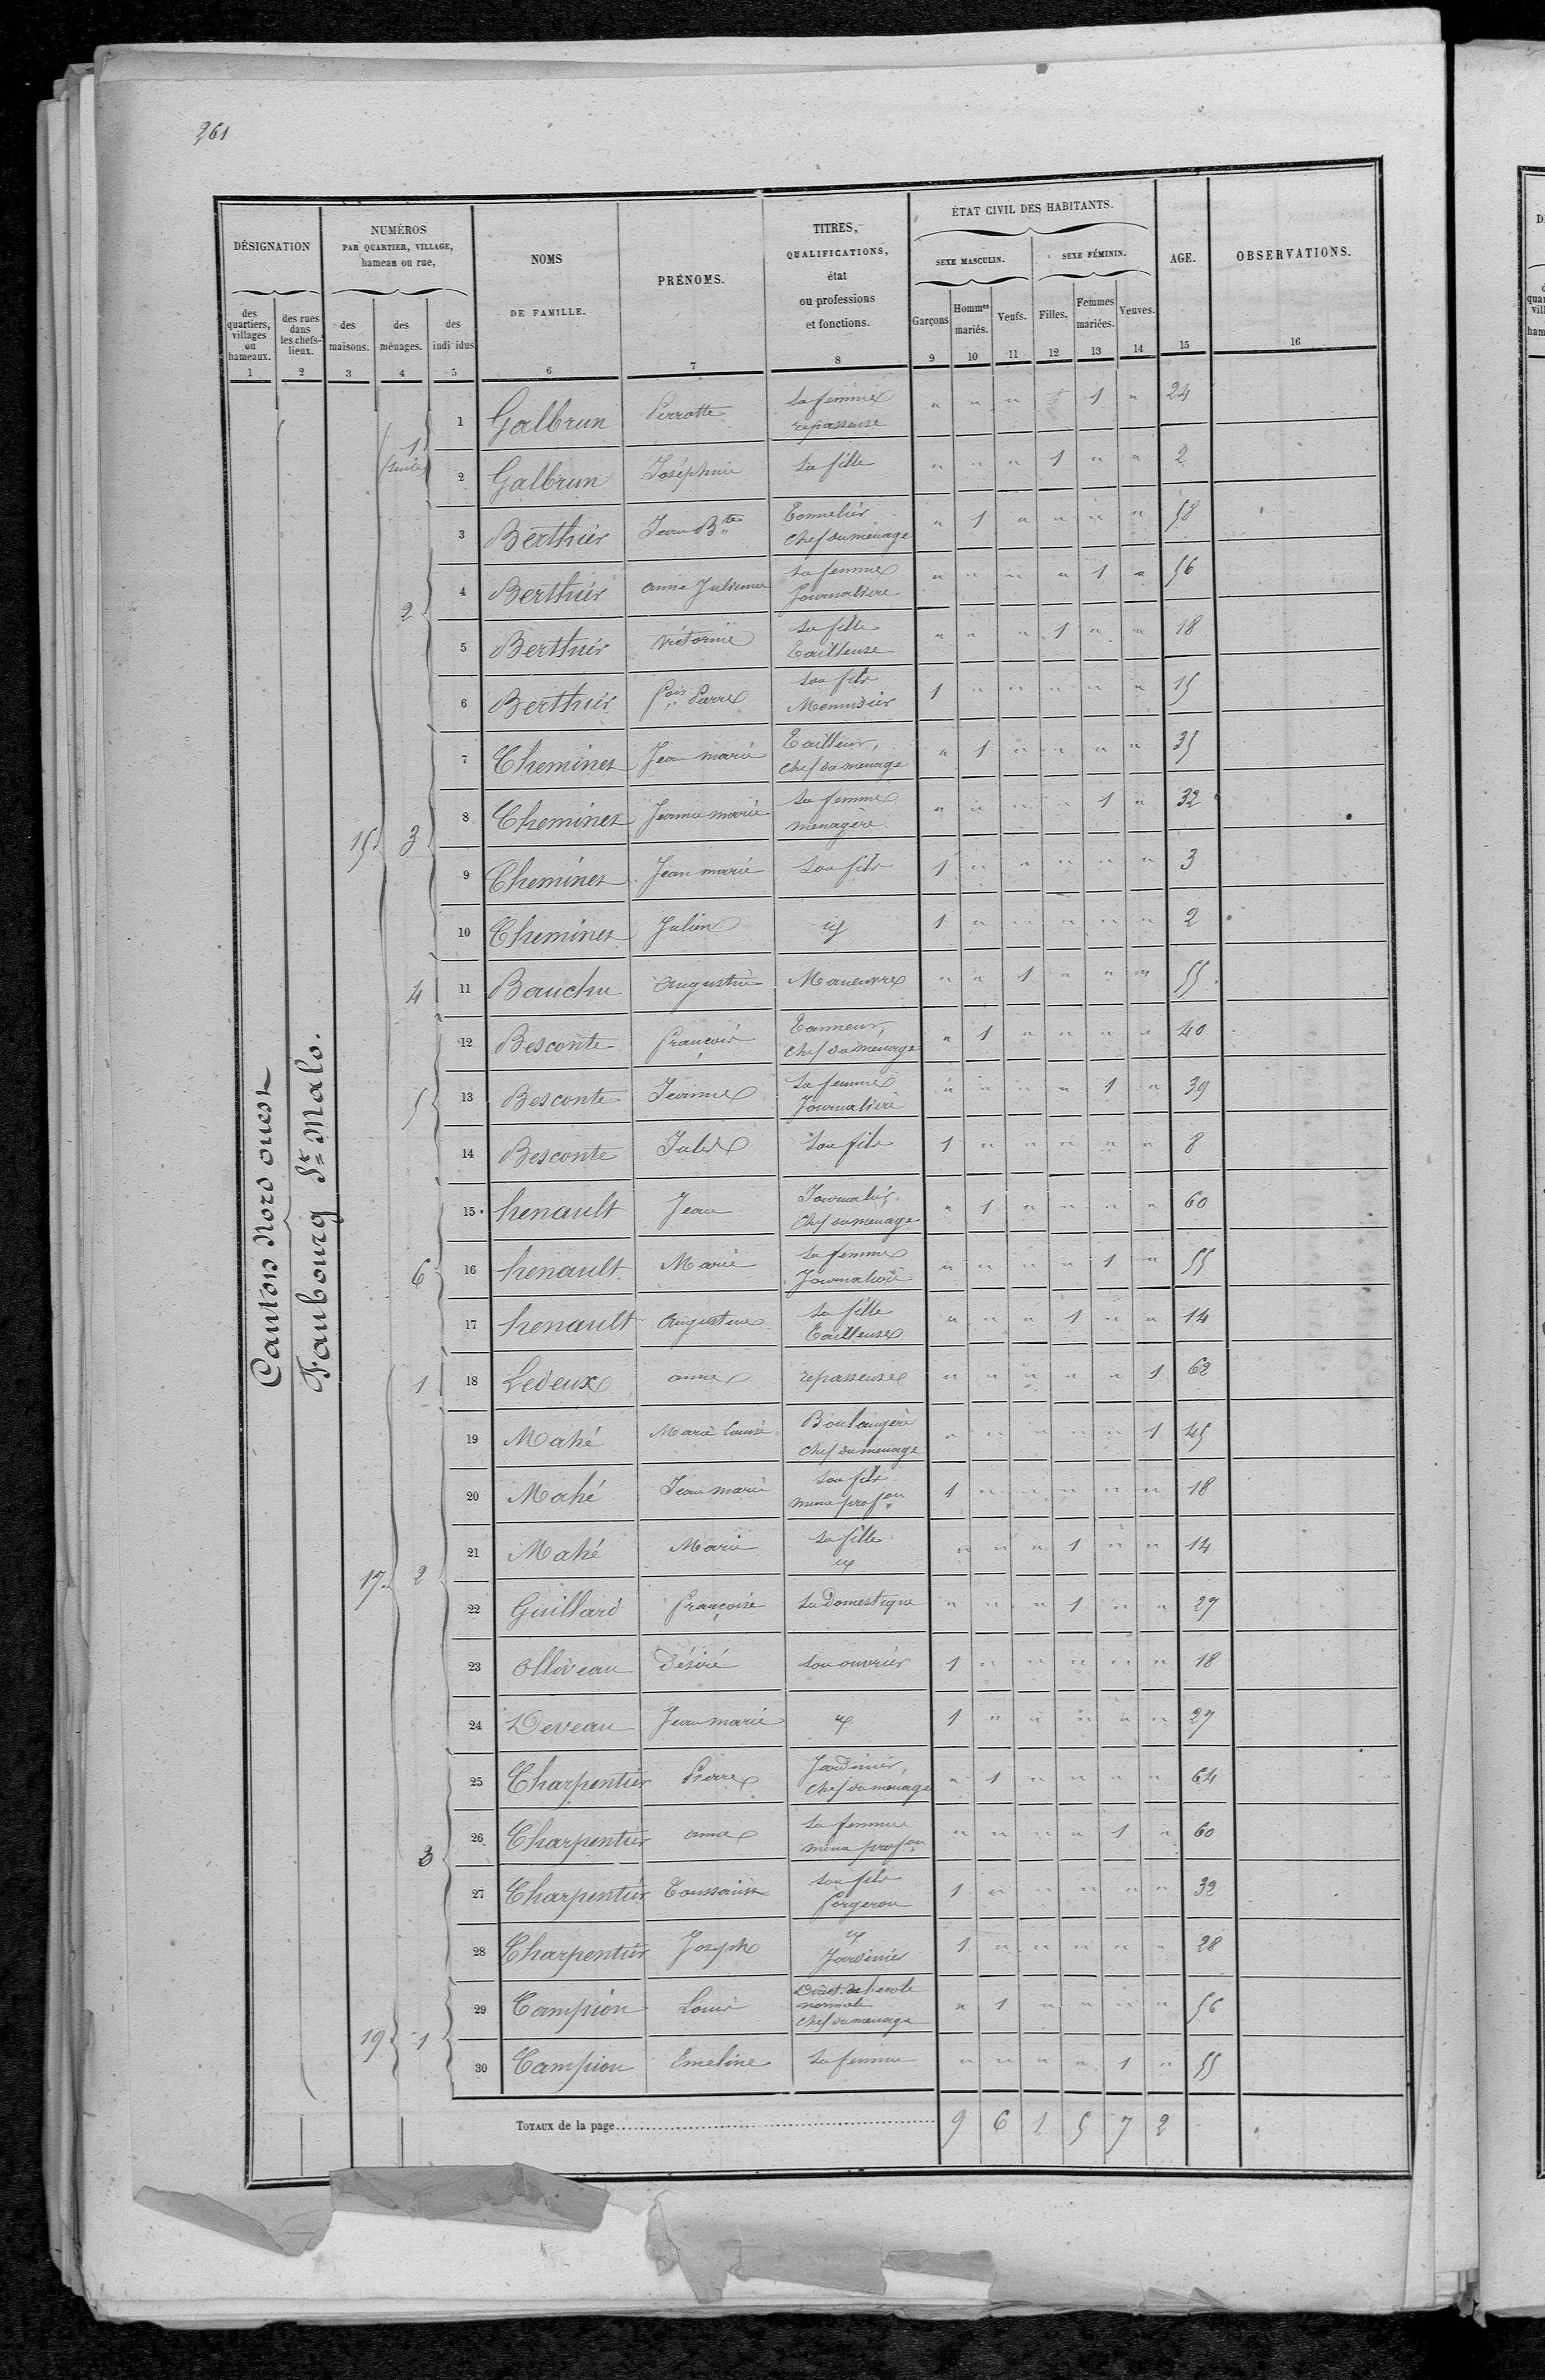 261
DÉSIGNATION
NUMÉROS
PAR QUARTIER, VILLAGE,
hameau ou rue,
NOMS
DE FAMILLE.
PRÉNOMS.
TITRES,
QUALIFICATIONS,
état
ou professions
et fonctions.
ÉTAT CIVIL DES HABITANTS.
SEXE MASCULIN.
SEXE FÉMININ.
AGE.
OBSERVATIONS.
des quartiers, villages ou hameaux.
des rues dans les chefs-lieux.
des maisons.
des ménages.
des indi idus
Garçons
Hommes mariés.
Veufs.
Filles.
Femmes mariées.
Veuves.
1 2 3 4 5 6 7 8 9 10 11 12 13 14 15 16
Canton Nord ouest
Faubourg St Malo.
15 1 (suite) 1 Galbrun Perrotte sa femme repasseuse " " " " 1 " 24
2 Galbrun Joséphine sa fille " " " 1 " " 2
2 3 Berthier Jean Bte Tonnelier Chef du ménage " 1 " " " " 58
4 Berthier anne Julienne sa femme Journalière " " " " 1 " 56
5 Berthier Victorine sa fille Tailleuse " " " 1 " " 18
6 Berthier fois Pierre son fils Menuisier 1 " " " " " 15
3 7 Cheminet Jean marie Tailleur, chef du menage " 1 " " " " 35
8 Cheminet Jeanne marie sa femme menagère " " " " 1 " 32
9 Cheminet Jean marie son fils 1 " " " " " 3
10 Cheminet Julien id 1 " " " " " 2
4 11 Bauchu Augustin Manœuvre " " 1 " " " 55
5 12 Besconte françois Tanneur, chef du ménage " 1 " " " " 40
13 Besconte Jeanne sa femme Journalière " " " " 1 " 39
14 Besconte Jules son fils 1 " " " " " 8
6 15 henault Jean Journalier Chef du menage " 1 " " " " 60
16 henault Marie sa femme Journalière " " " " 1 " 55
17 henault Augustine sa fille Tailleuse " " " 1 " " 14
17 1 18 Ledeux anne repasseuse " " " " " 1 62
2 19 Mahé Marie Louise Boulangère chef du menage " " " " " 1 45
20 Mahé Jean marie son fils meme profon 1 " " " " " 18
21 Mahé Marie sa fille id " " " 1 " " 14
22 Guillard françoise sa Domestique " " " 1 " " 27
23 Olliveau Désiré son ouvrier 1 " " " " " 18
24 Deveau Jean marie id 1 " " " " " 27
3 25 Charpentier Pierre Jardinier, chef du ménage " 1 " " " " 64
26 Charpentier anne sa femme meme profon " " " " 1 " 60
27 Charpentier Toussaint son fils forgeron 1 " " " " " 32
28 Charpentier Joseph id Jardinier 1 " " " " " 28
19 1 29 Campion Louis Direct. de l'ecole normale chef du menage " 1 " " " " 56
30 Campion Emeline sa femme " " " " 1 " 55
TOTAUX de la page 9 6 1 5 7 2